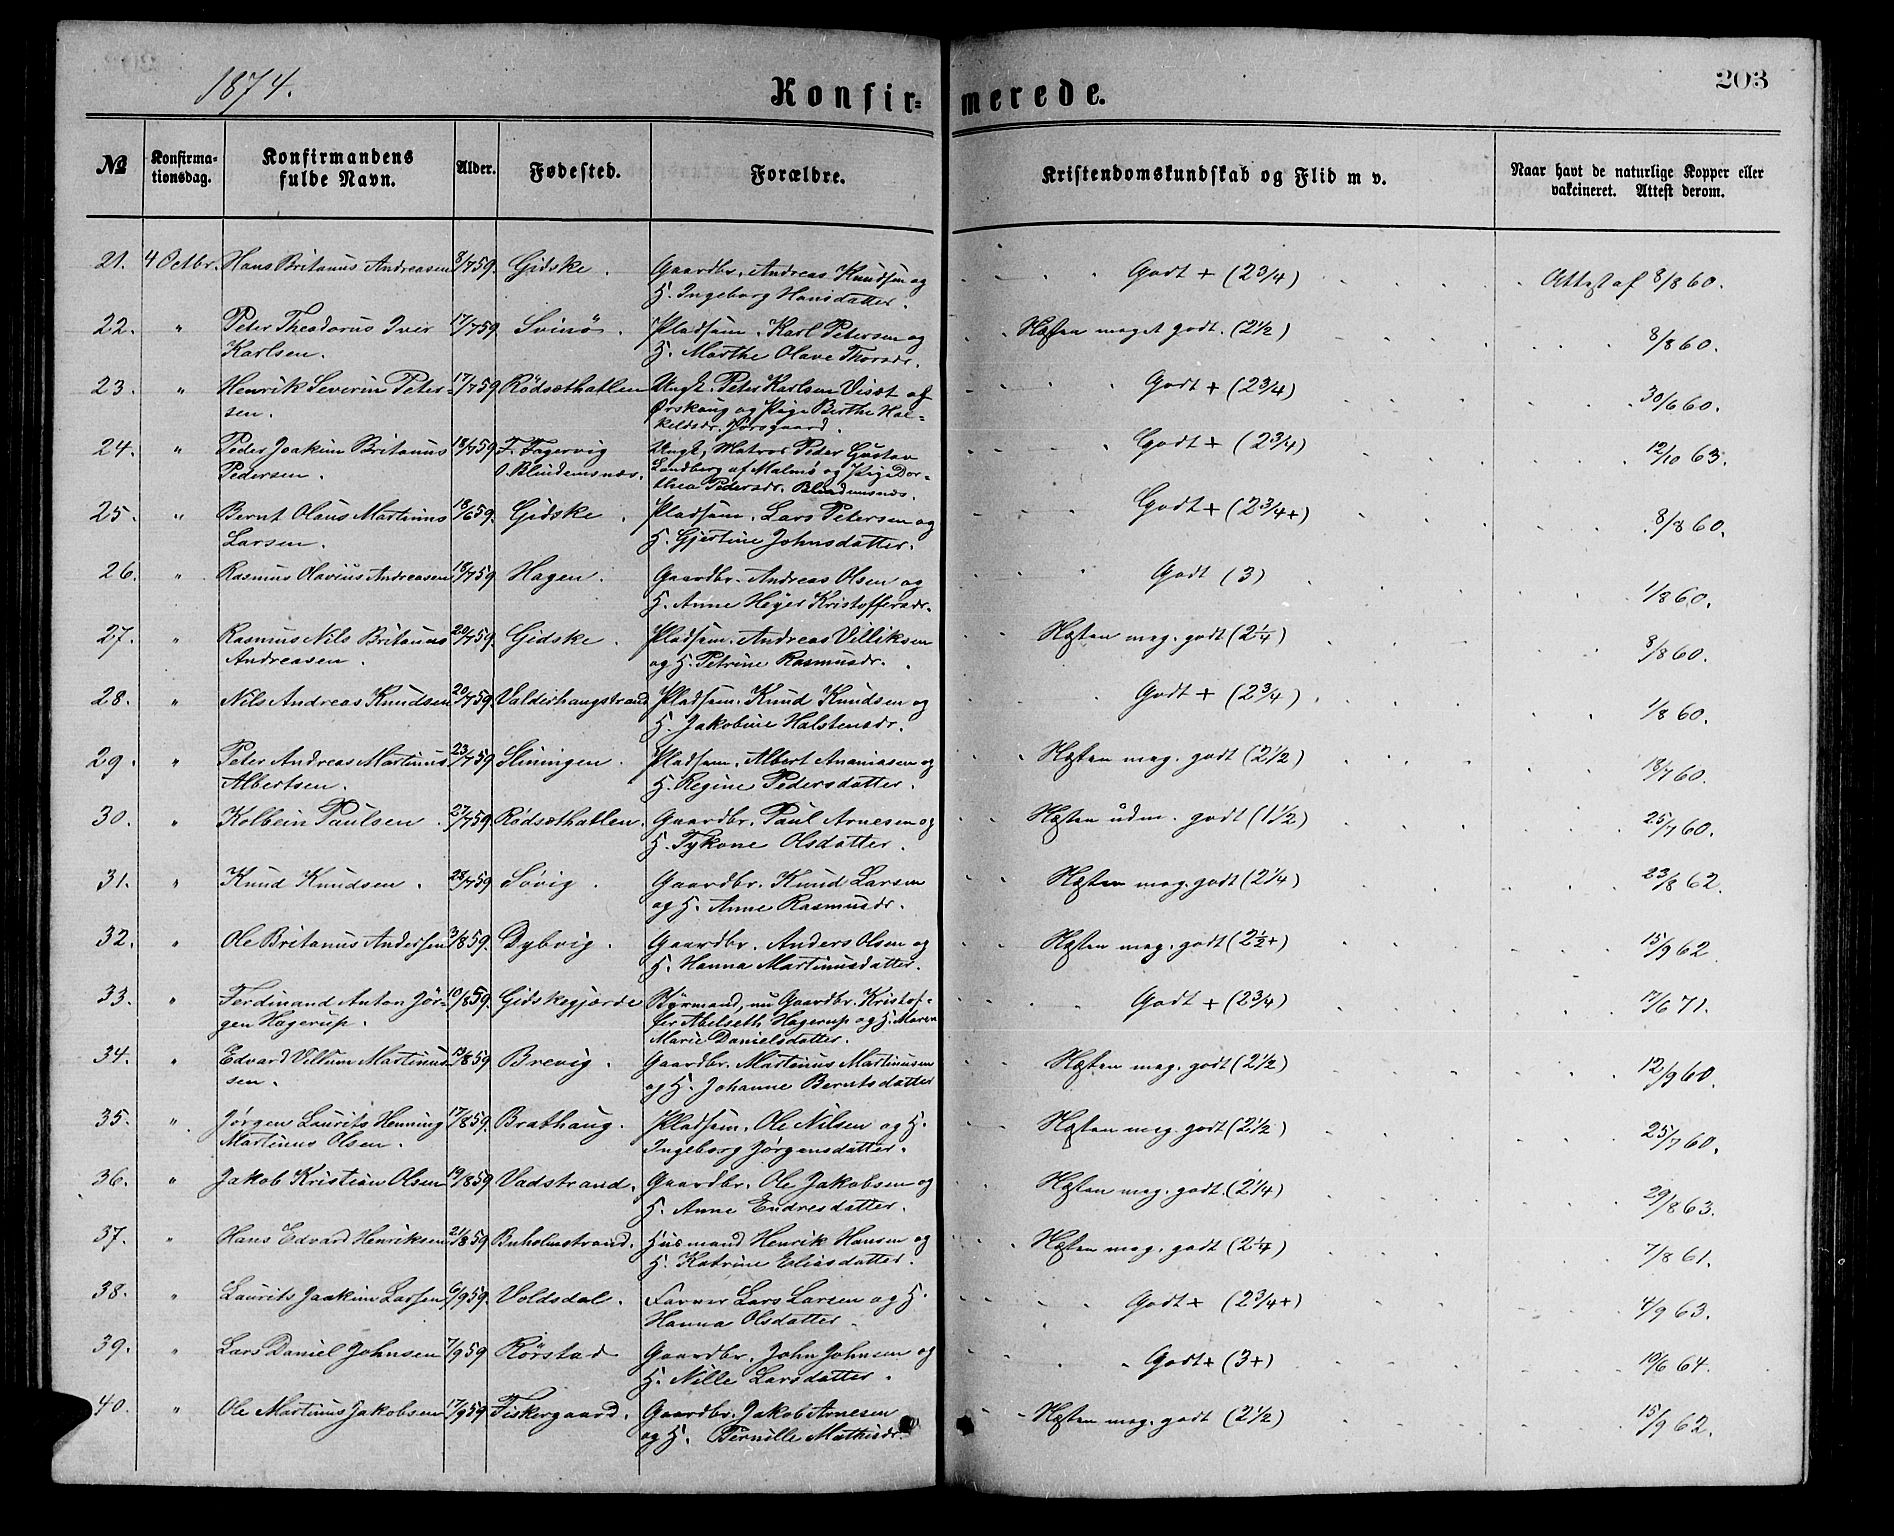 1874.
Konfir-
merede.
203
№
Konfirma-
tionsdag.
Konfirmandens
fulde Navn.
Alder.
Fødested.
Forældre.
Kristendomskundskab og Flid m v.
Naar havt de naturlige Kopper eller
vakcineret. Attest derom.
21. 4 Octbr. Hans Britanus Andreasen 8/7 59. Gidske. Gaardbr. Andreas Knudsen og Godt + (2 3/4) Attest af 8/8 60.
H. Ingeborg Hansdatter.
22. " Peter Theodorus Iver 17/7 59. Svinø. Pladsem. Karl Petersen og Næsten meget godt. (2 1/2) 8/8 60.
Karlsen. H. Marthe Olave Thorsdr.
23. " Henrik Severin Peter- 17/7 59 Rødsæthatlen Ungk. Peter Karlsen Visæt af Godt + (2 3/4) 30/6 60.
sen. Ørskoug og Pige Berthe Hal-
keldsdr. Jørsgaard.
24. " Peder Joakim Britanus 18/7 59 F. Fagervig Ungk. Matros Peder Gustav Godt + (2 3/4) 12/10 63.
Pedersen. O. Blindemsnæs. Landberg af Malmø og Pige Dor-
thea Pedersdr. Blindemsnæs.
25. " Bernt Olaus Martinus 18/6 59. Gidske. Pladsem. Lars Petersen og Godt + (2 3/4+) 8/8 60.
Larsen. H. Gjertine Johnsdatter.
26. " Rasmus Olavius Andreasen 18/7 59 Hagen. Gaardbr. Andreas Olsen og Godt (3) 1/8 60.
H. Anne Heyer Kristoffersdr.
27. " Rasmus Nils Britanus 20/7 59. Gidske. Pladsem. Andreas Villiksen Næsten meg. godt (2 1/4) 8/8 60.
Andreasen. og H. Petrine Rasmusdr.
28. " Nils Andreas Knudsen 20/7 59. Valderhaugstrand Pladsem. Knud Knudsen og Godt + (2 3/4) 1/8 60.
H. Jakobine Halstensdr.
29. " Peter Andreas Martinus 23/7 59 Slinningen. Pladsem. Albert Ananiasen og Næsten meg. godt (2 1/2) 18/7 60.
Albertsen. H. Regine Pedersdatter.
30. " Kolbein Paulsen. 27/7 59. Rødsæthatlen. Gaardbr. Paul Arnesen og Næsten udm. godt (1 1/2) 25/7 60.
H. Tykone Olsdatter.
31. " Knud Knudsen. 28/7 59 Søvig. Gaardbr. Knud Larsen Næsten meg. godt (2 1/4) 23/8 62.
og H. Anne Rasmusdr.
32. " Ole Britanus Andersen 3/8 59. Dybvig. Gaardbr. Anders Olsen og Næsten meg. godt (2 1/2+) 15/9 62
H. Hanna Martinusdatter.
33. " Ferdinand Anton Jør- 10/8 59. Gidskegjerde Styrmand, nu Gaardbr. Kristof- Godt + (2 3/4) 17/6 71.
gen Hagerup. fer Abelseth Hagerup og H. Maren
Marie Danielsdatter.
34. " Edvard Villum Martinus- 13/8 59 Brevig. Gaardbr. Martinus Martinusen Næsten meg. godt (2 1/2) 12/9 60.
sen. og H. Johanne Berntsdatter
35. " Jørgen Laurits Henning 17/8 59. Brathaug. Pladsem. Ole Nilsen og H. Næsten meg. godt (2 1/2) 25/7 60.
Martinus Olsen. Ingeborg Jørgensdatter.
36. " Jakob Kristian Olsen 19/8 59 Vadstrand. Gaardbr. Ole Jakobsen og Næsten meg. godt (2 1/4) 29/8 63.
H. Anne Endresdatter.
37. " Hans Edvard Henriksen 21/8 59 Buholmstrand. Husmand Henrik Hansen og Næsten meg. godt (2 1/4) 7/8 61.
H. Katrine Eliasdatter.
38. " Laurits Joakim Larsen 6/9 59. Voldsdal. Farver Lars Larsen og H. Godt + (2 3/4+) 4/9 63.
Hanna Olsdatter.
39. " Lars Daniel Johnsen 7/9 59 Rørstad Gaardbr. John Johnsen og Godt + (3+) 10/6 64.
H. Nille Larsdatter.
40. " Ole Martinus Jakobsen 17/9 59 Fiskergaard. Gaardbr. Jakob Arnesen Næsten meg. godt (2 1/2) 15/9 62.
og H. Pernille Mathisdr.